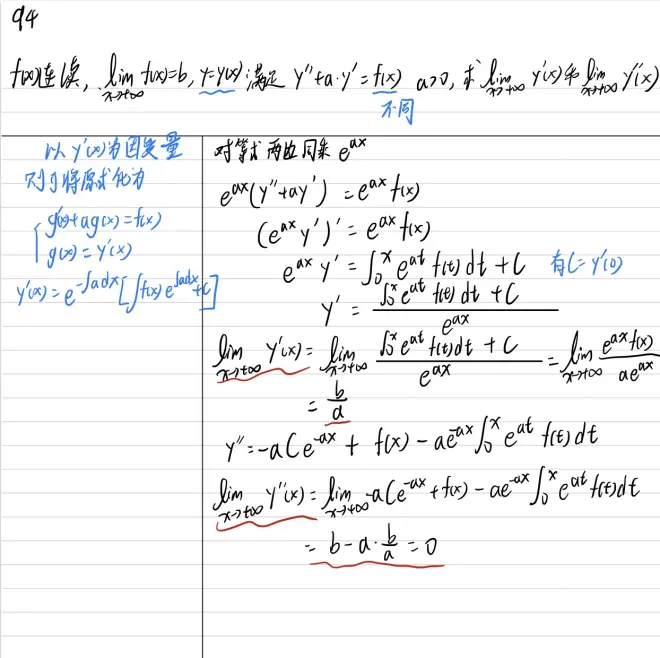 94
f(x)连续, lim_{x→+∞} f(x)=b, y=y(x)满足 y''+a·y'=f(x) a>0, 求 lim_{x→+∞} y'(x)和 lim_{x→+∞} y''(x)
不同
以 y'(x)为因变量
则可将原式化为
g'(x)+ag(x)=f(x)
g(x)=y'(x)
y'(x)=e^{-∫adx}[∫f(x)e^{∫adx}+C]
对等式两边同乘 e^{ax}
e^{ax}(y''+ay')=e^{ax}f(x)
(e^{ax}y')'=e^{ax}f(x)
e^{ax}y'=∫_0^x e^{at}f(t)dt+C 有C=y'(0)
y'=\frac{∫_0^x e^{at}f(t)dt+C}{e^{ax}}
lim_{x→+∞} y'(x)=lim_{x→+∞} \frac{∫_0^x e^{at}f(t)dt+C}{e^{ax}}=lim_{x→+∞} \frac{e^{ax}f(x)}{ae^{ax}}
=\frac{b}{a}
y''=-aCe^{-ax}+f(x)-ae^{-ax}∫_0^x e^{at}f(t)dt
lim_{x→+∞} y''(x)=lim_{x→+∞} -aCe^{-ax}+f(x)-ae^{-ax}∫_0^x e^{at}f(t)dt
=b-a·\frac{b}{a}=0